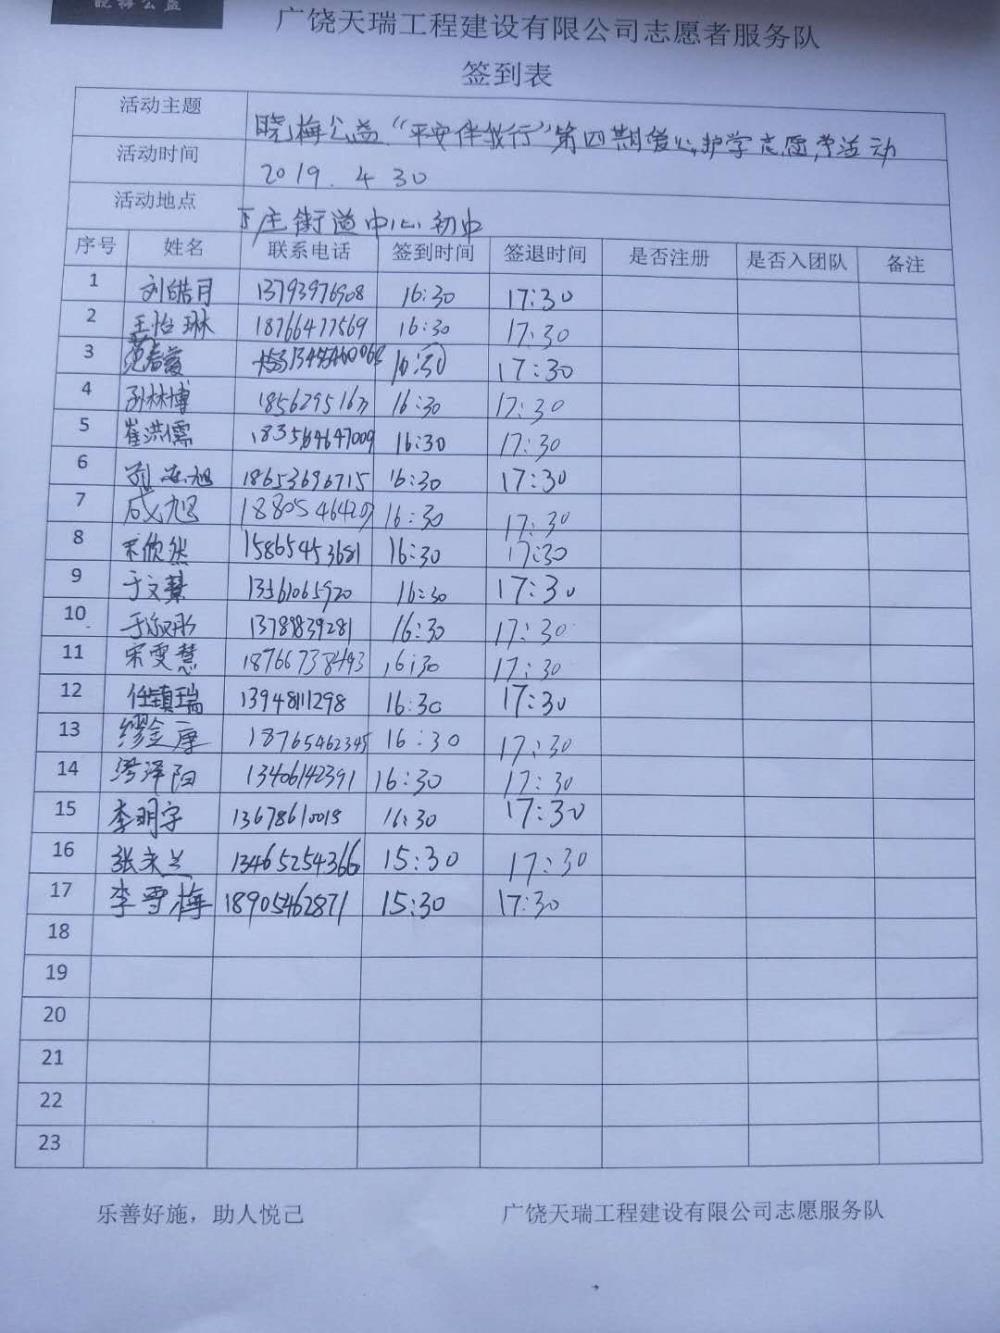 晓梅公益
广饶天瑞工程建设有限公司志愿者服务队
签到表
活动主题 晓梅公益“平安伴我行”第四期爱心护学志愿者活动
活动时间 2019.4 30
活动地点 庄街道中心初中
序号 姓名 联系电话 签到时间 签退时间 是否注册 是否入团队 备注
1 刘皓月 13793976908 16:30 17:30
2 王怡琳 18766477569 16:30 17:30
3 16:30 17:30
4 孙林博 16:30 17:30
5 崔洪儒 16:30 17:30
6 18653696715 16:30 17:30
7 成旭 16:30 17:30
8 宋欣然 15865453681 16:30 17:30
9 于文慧 13561065920 16:30 17:30
10 13789839281 16:30 17:30
11 宋雯慧 18766738493 16:30 17:30
12 任镇瑞 13948111298 16:30 17:30
13 缪金库 18765462345 16:30 17:30
14 泽阳 13406142391 16:30 17:30
15 李明宇 13678610019 16:30 17:30
16 张兰 13465254366 15:30 17:30
17 李雪梅 18905462871 15:30 17:30
18
19
20
21
22
23
乐善好施，助人悦己 广饶天瑞工程建设有限公司志愿服务队